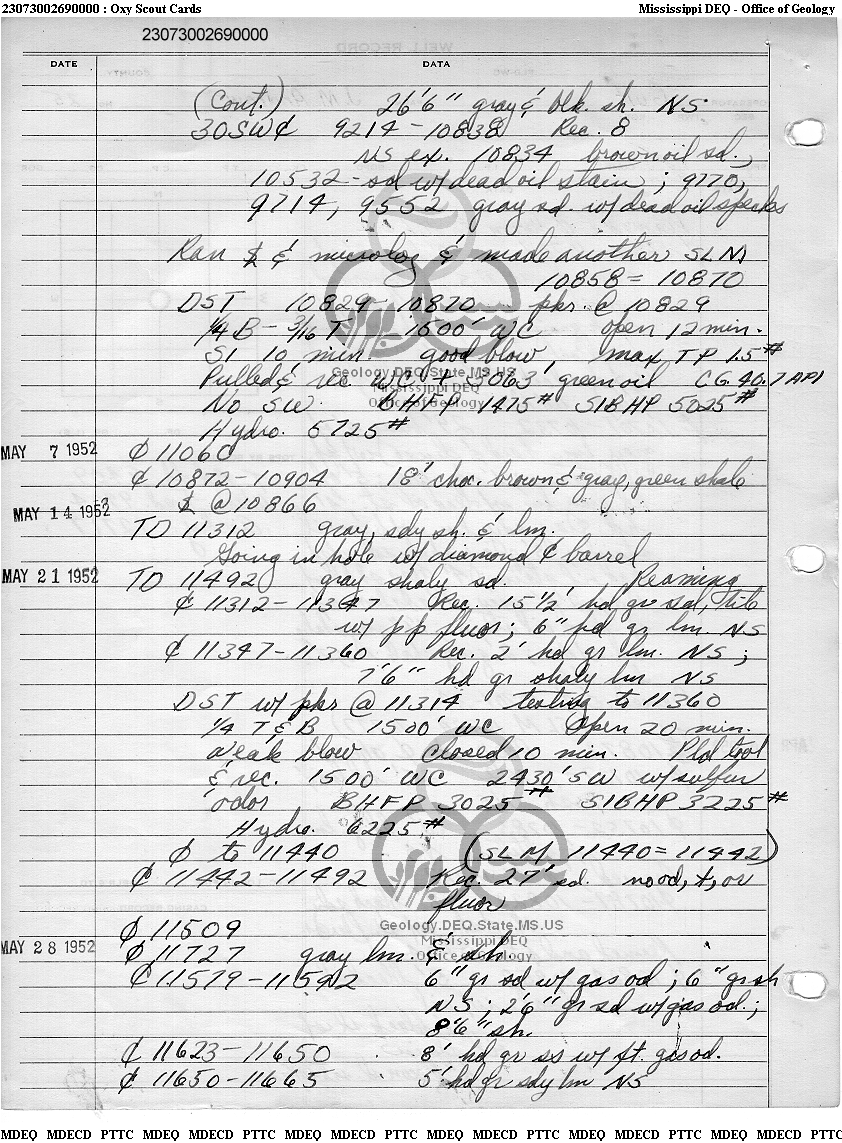 23073002690000 : Oxy Scout Cards Mississippi DEQ - Office of Geology
23073002690000
DATE DATA
(Cont.) 26'6" gray & blk. sh. NS.
30SW₵ 9214-10838 Rec. 8
NS ex. 10834 brown oil sd.,
10532-sd w/dead oil stain; 9770,
9714, 9552 gray sd. w/dead oil specks
Ran & microlog & made another SLM
10858 = 10870
DST 10829-10870 pkr. @ 10829
1/4 B - 3/16 T 1500' WC open 12 min.
SI 10 min. good blow max TP 1.5#
Pulled & rec. WC + 3063' green oil CG. 40.7 API
No SW. BHFP 1475# SIBHP 5025#
Hydro. 5725#
MAY 7 1952 ₵ 11060
₵ 10872-10904 18' choc. brown & gray, green shale
@ 10866
MAY 14 1952
TD 11312 gray, sdy sh. & lm.
Going in hole w/ diamond ₵ barrel
MAY 21 1952 TD 11492 gray shaly sd. Reaming
₵ 11312-11347 Rec. 15 1/2' hd gr sd, tite
w/ pp fluor; 6" hd gr lm. NS
₵ 11347-11360 Rec. 2' hd gr lm. NS;
7'6" hd gr shaly lm NS
DST w/ pkr @ 11314 testing to 11360
1/4 T & B 1500' WC Open 20 min.
Weak blow Closed 10 min. Pld tool
& rec. 1500' WC 2430' SW w/sulfur
odor BHFP 3025# SIBHP 3225#
Hydro. 6225#
∅ to 11440 (SLM 11440 = 11442)
₵ 11442-11492 Rec. 27' sd. no od, t, or
fluor
∅ 11509
MAY 28 1952 ∅ 11727 gray lm. & sh
₵ 11579-11592 6" gr sd w/ gas od; 6" gr sh
NS; 2'6" gr sd w/gas od.;
8'6" sh.
₵ 11623-11650 8' hd gr ss w/ ft. gas od.
₵ 11650-11665 5' hd gr sdy lm NS
Geology.DEQ.State.MS.US
Mississippi DEQ
Office of Geology
Geology.DEQ.State.MS.US
Mississippi DEQ
Office of Geology
MDEQ MDECD PTTC MDEQ MDECD PTTC MDEQ MDECD PTTC MDEQ MDECD PTTC MDEQ MDECD PTTC MDEQ MDECD PTTC